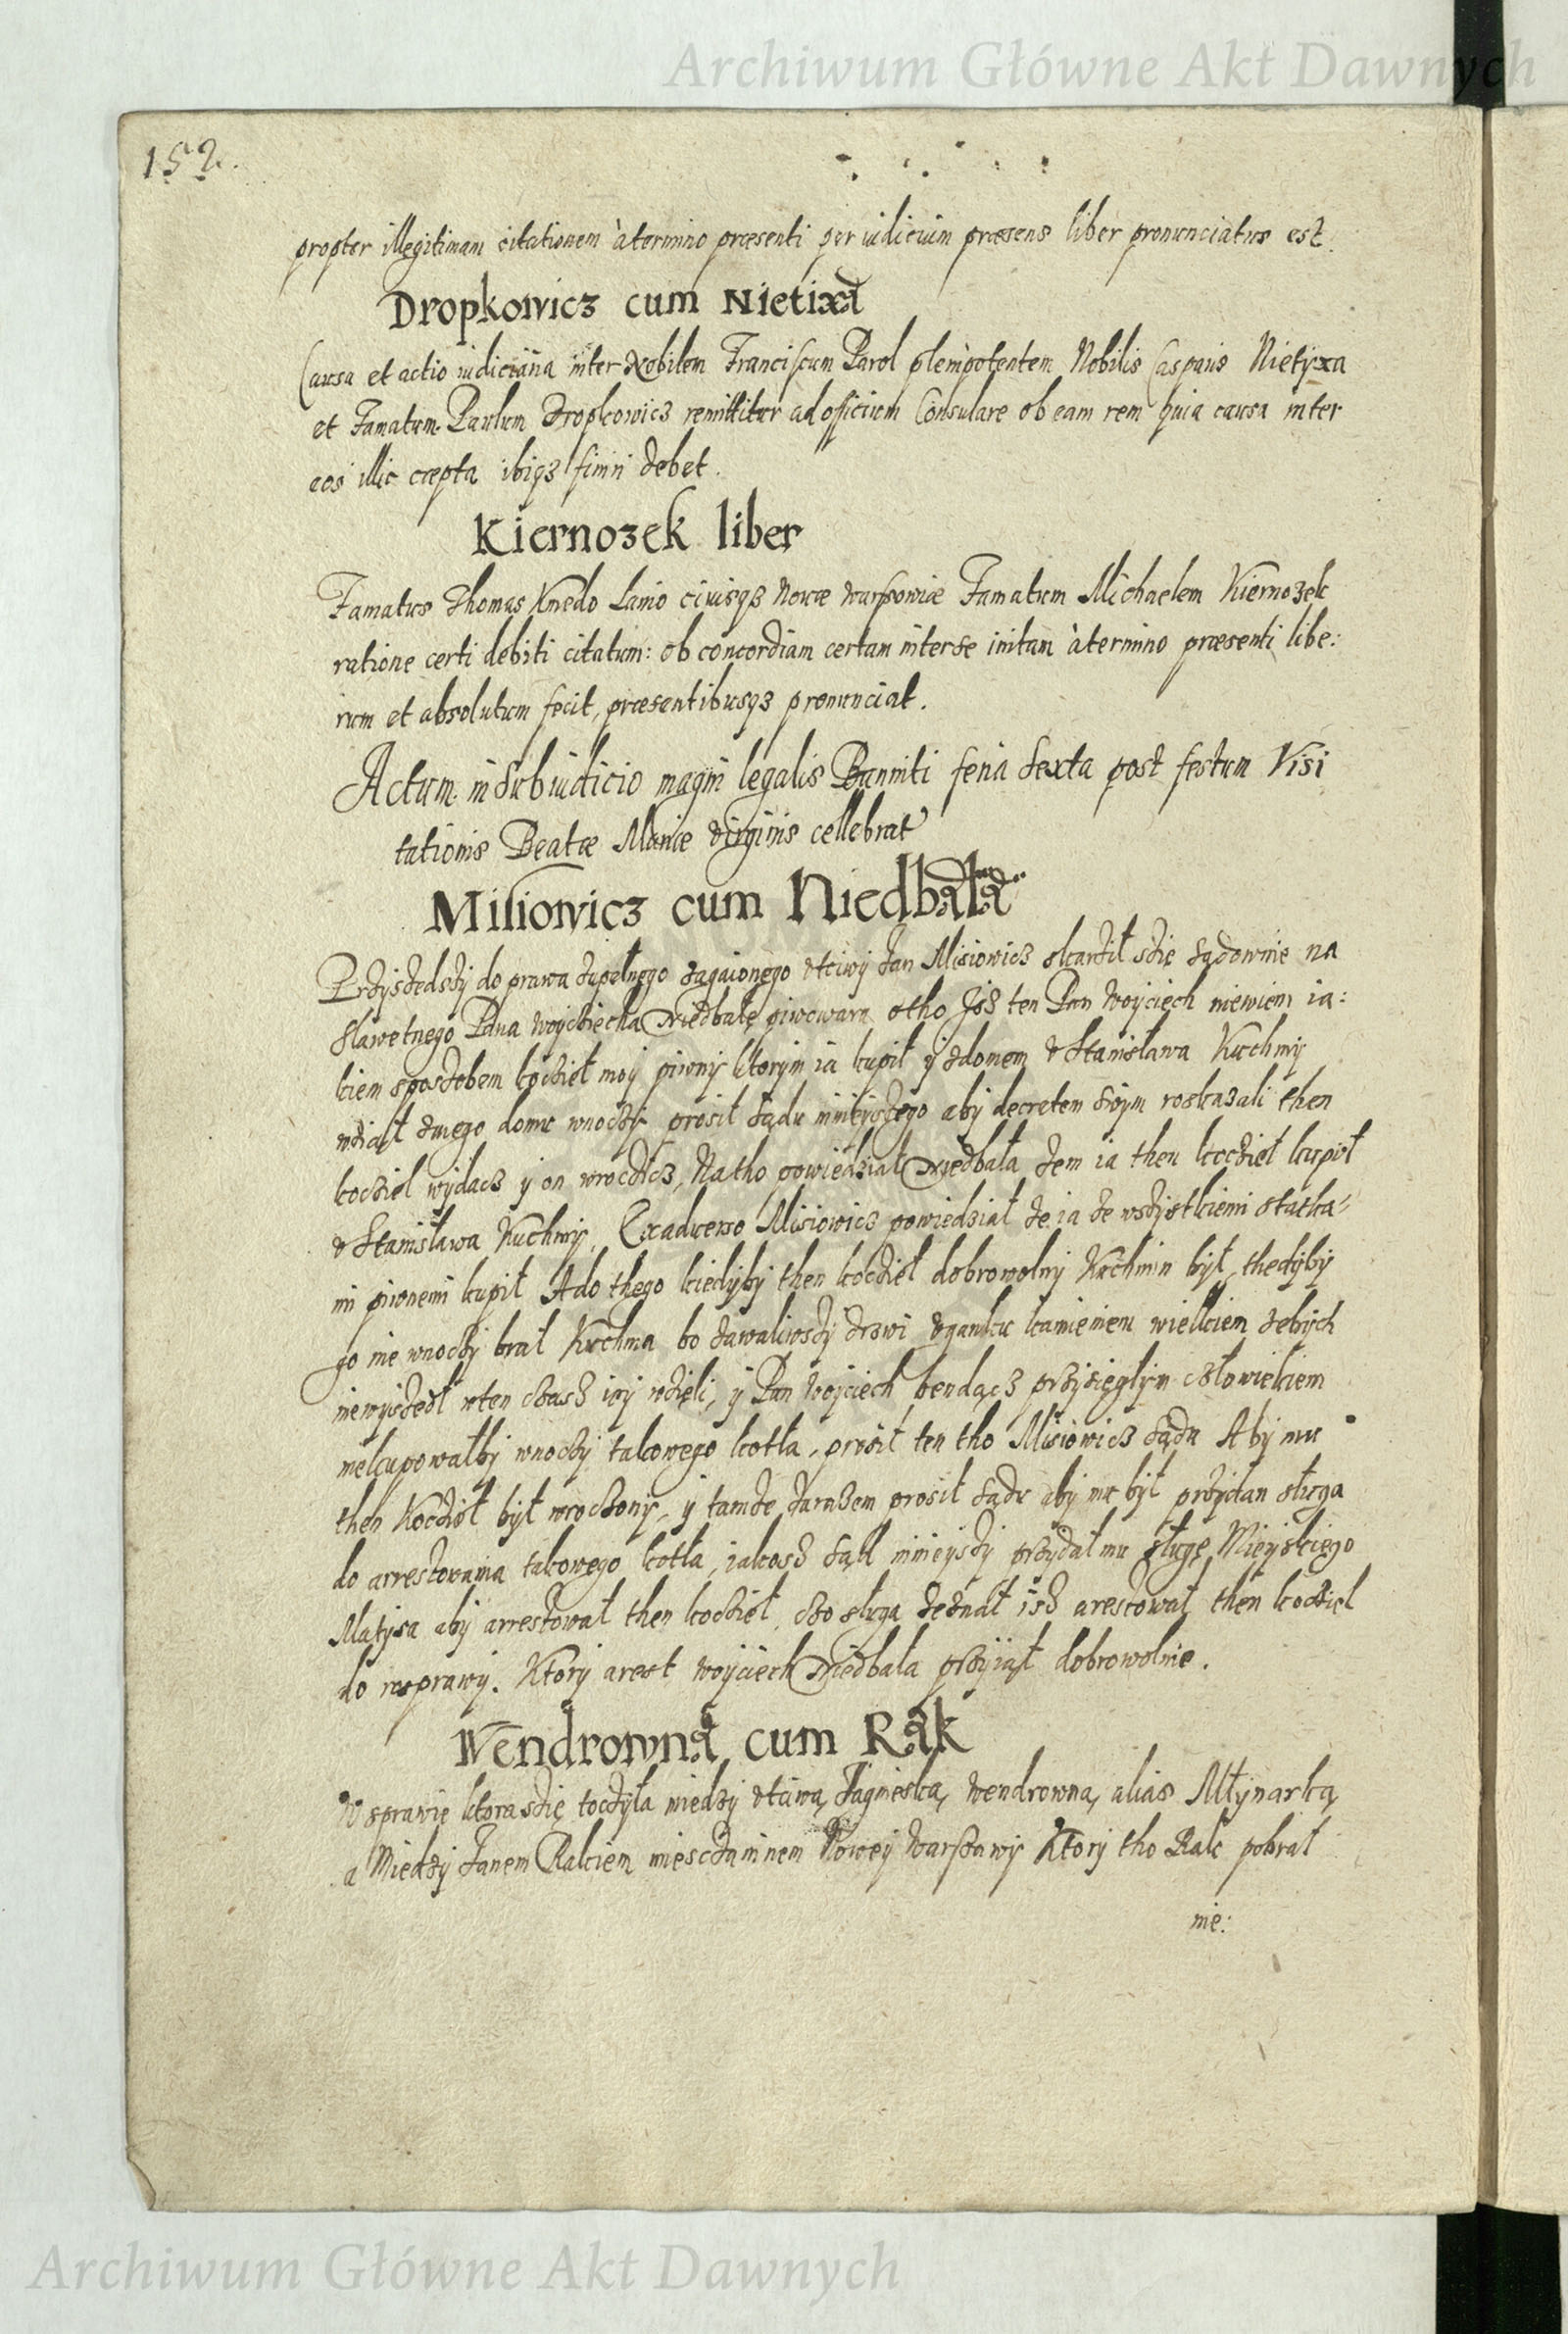 Archiwum Główne Akt Dawnych
152.
propter illegitimam citationem à termino præsenti per iudicium præsens liber pronunciatus est.
Dropkowicz cum Nietixa
Causa et actio iudiciaria inter Nobilem Franciscum Parol plenipotentem Nobilis Casparis Nietyxa
et Famatum Paulum Dropkowicz remittitur ad officium Consulare ob eam rem quia causa inter
eos illic cæpta ibiqз finiri debet.
Kiernozek liber
Famatus Thomas Kmedo Lanio ciuisqз Novæ warsoviæ Famatum Michaelem Kiernozek
ratione certi debiti citatum: ob concordiam certam inter se initam à termino præsenti libe:
rum et absolutum fecit, præsentibusqз pronunciat.
Actum in Subiudicio magni legalis Banniti feria sexta post festum Visi
tationis Beatæ Mariæ virginis cellebrat
Misiowicz cum Niedbała
Przyszedszy do prawa zupełnego zagaionego vtciwy Jan Misiowicz skarżił szię sądownie na
sławetnego Pana woyciecha Niedbałę piwowara otho Jsz ten Pan Woyciech niewiem ia:
kiem sposzobem koczieł moy piwny ktorym ia kupił y zdomem v Stanisława Kuchmy
wziął zmego domu wnoczy, prosił sądu ninieyszego aby decretem swym roskazali then
kocziel wydacz y on wroczicz, Natho powiedział Niedbała zem ia then koczieł kupił
v Stanisława Kuchmy, Exaduerso Misiowicz powiedział że ia ze wszystkiemi statka-
mi piwnemi kupił Ado thego kiedyby then koczieł dobrowolny Kuchmin był, thedyby
go nie wnoczy brał Kuchma bo zawaliwszy drzwi vganku kamieniem wielkiem zebych
niewyszedł wten czasz iey wzięli, y Pan Woyciech bendącz przysięgłym człowiekiem
niekupowałby wnoczy takowego kotła, prosił ten tho Misiowicz sądu Aby mu
then Koczieł był wroczony, y tamże zarazem prosił sądu aby mu był przydan sługa
do arrestowania takowego kotła, iakosz sąd ninieyszy przydał mu sługę Mieyskiego
Matysa aby arrestował then koczieł, czo sługa zeznał isz arestował then kocziel
do rosprawy. Ktory arest woyciech Niedbała przyiął dobrowolnie.
Wendrowna cum Rak
W sprawie ktora szię toczyła miedzy vtciwą Jagnieską, wendrowną, alias Młynarką
a Miedzy Janem Rakiem miesczaninem Nowey Warszawy Ktory tho Rak pobrał
nie:
Archiwum Główne Akt Dawnych